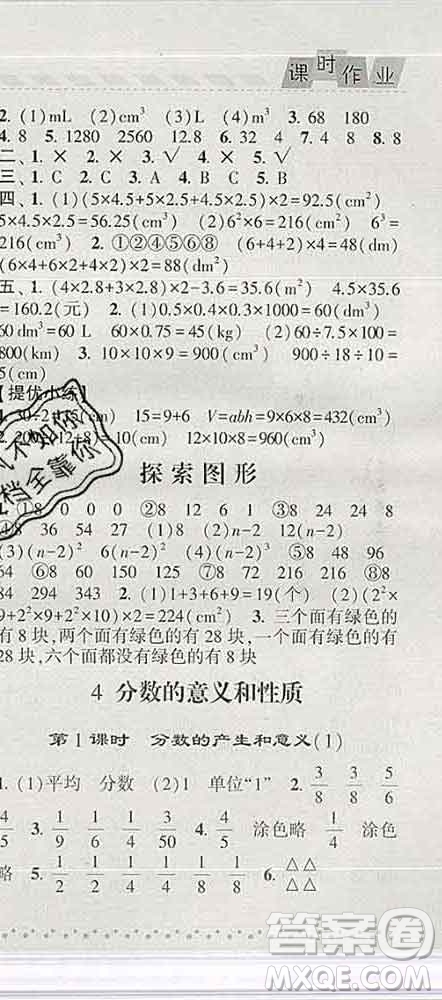 课时作业
2. (1)mL (2)cm³ (3)L (4)m³ 3. 68 180
4. 8 5. 1280 2560 12.8 6. 32 4 7. 4 8. 8
二、1. × 2. × 3. √ 4. × 5. √
三、1. C 2. C 3. A 4. B 5. C
四、1. (1)(5×4.5+5×2.5+4.5×2.5)×2=92.5(cm²)
5×4.5×2.5=56.25(cm³) (2)6²×6=216(cm²) 6³=
216(cm³) 2. ①②④⑤⑥⑧ (6+4+2)×4=48(dm)
(6×4+6×2+4×2)×2=88(dm²)
五、1. (4×2.8+3×2.8)×2-3.6=35.6(m²) 4.5×35.6
=160.2(元) 2. (1)0.5×0.4×0.3×1000=60(dm³)
60dm³=60 L 60×0.75=45(kg) (2)60÷7.5×100=
800(km) 3. 60×30×15÷(60÷2)=900(cm²) 900÷30÷2=
5(cm)
【提优小练】
30÷2=15(cm) 15=9+6 V=abh=9×6×8=432(cm³)
2. 200÷(12+8)=10(cm) 12×10×8=960(cm³)
探索图形
①8 0 0 0 ②8 12 6 1 ③8 24 24 8
④8 36 54 27 (1)8 (2)(n-2)×12
(3)(n-2)²×6 (4)(n-2)³ ⑤8 48 96
64 ⑥8 60 150 125 ⑦8 72 216 216 ⑧8
84 294 343 2. (1)1+3+6+9=19(个) (2)(2²×
9+2²×9+2²×10)×2=224(cm²) 3. 三个面有绿色的
有8块,两个面有绿色的有28块,一个面有绿色的有
28块,六个面都没有绿色的有8块
4 分数的意义和性质
第1课时 分数的产生和意义(1)
1. (1)平均 分数 (2)1 单位“1” 2. 3/8 3/8 5/6
4/5 3. 1/9 1/9 1/4 3/50 4. 4/5 涂色略 1/4 涂色
略 5. 1/2 1/2 1/4 1/4 1/8 1/8 6. △△△△
答案卷
MXQE.COM